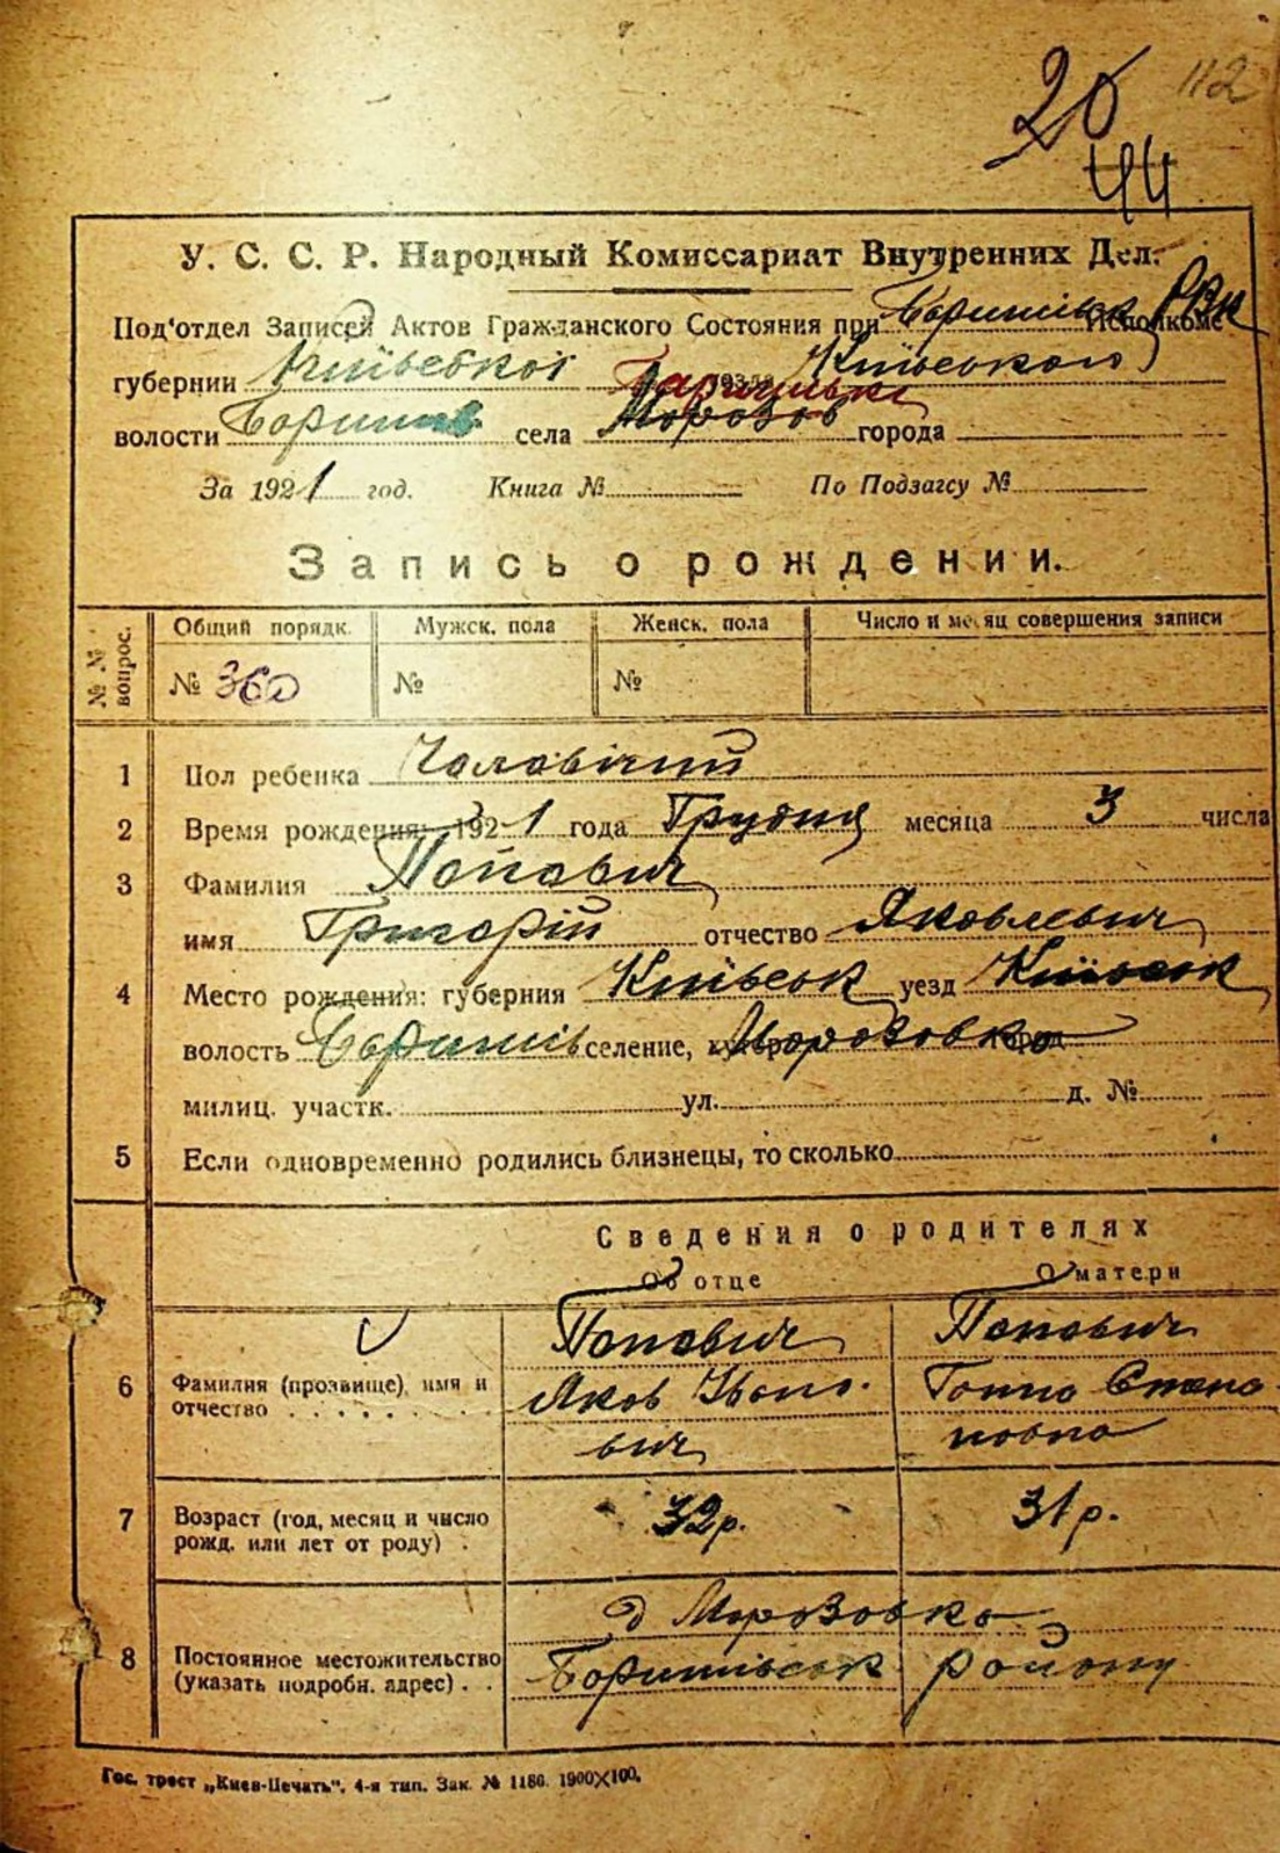 112
20
44
У. С. С. Р. Народный Комиссариат Внутренних Дел.
Под'отдел Записей Актов Гражданского Состояния при Баришівск РВК Исполкоме
губернии Київської уезда Баришівкі Київського
волости Баришів села Морозов города
За 1921 год. Книга № По Подзагсу №
Запись о рождении.
№ № вопрос. Общий порядк. Мужск. пола Женск. пола Число и месяц совершения записи
№ 360 № №
1 Пол ребенка Чаловічий
2 Время рождения: 1921 года Грудня месяца 3 числа
3 Фамилия Попович
имя Григорій отчество Яковлевич
4 Место рождения: губерния Київськ уезд Київськ
волость Баришів селение, Морозовка
милиц. участк. ул. д. №
5 Если одновременно родились близнецы, то сколько
Сведения о родителях
Об отце О матери
Попович Попович
6 Фамилия (прозвище), имя и Яков Івано- Ганна Степа-
отчество
вич новна
7 Возраст (год, месяц и число 32 р. 31 р.
рожд. или лет от роду)
д Морозовка
8 Постоянное местожительство Баришівськ району
(указать подробн. адрес)
Гос. трест „Киев-Печать", 4-я тип. Зак. № 1186. 1900×100.